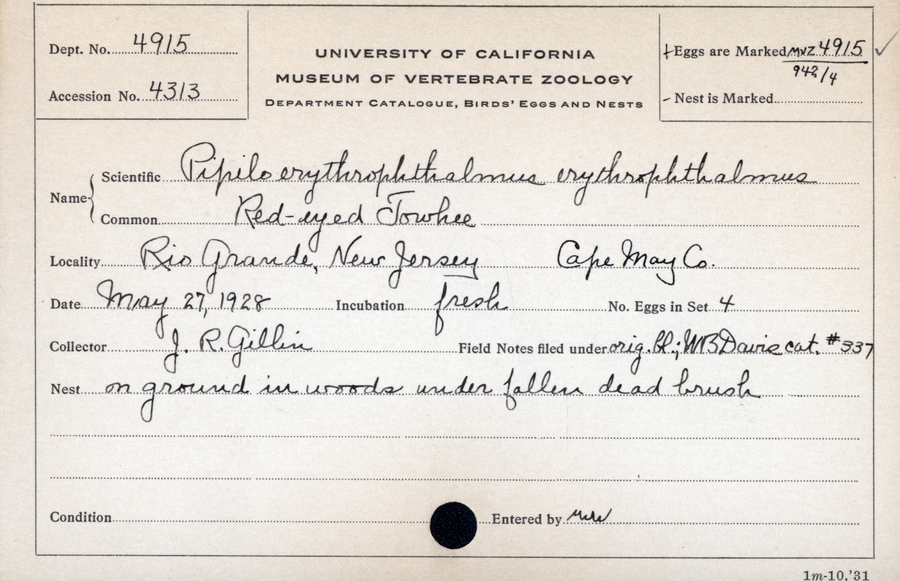 Dept. No. 4915
Accession No. 4313
UNIVERSITY OF CALIFORNIA
MUSEUM OF VERTEBRATE ZOOLOGY
DEPARTMENT CATALOGUE, BIRDS' EGGS AND NESTS
+Eggs are Marked MVZ 4915 ✓
942/4
- Nest is Marked
Name
Scientific Pipilo erythrophthalmus erythrophthalmus
Common Red-eyed Towhee
Locality Rio Grande, New Jersey Cape May Co.
Date May 27, 1928 Incubation fresh No. Eggs in Set 4
Collector J. R. Gillin Field Notes filed under orig. bl.; WB Davis cat. #337
Nest on ground in woods under fallen dead brush
Condition Entered by
1m-10,'31